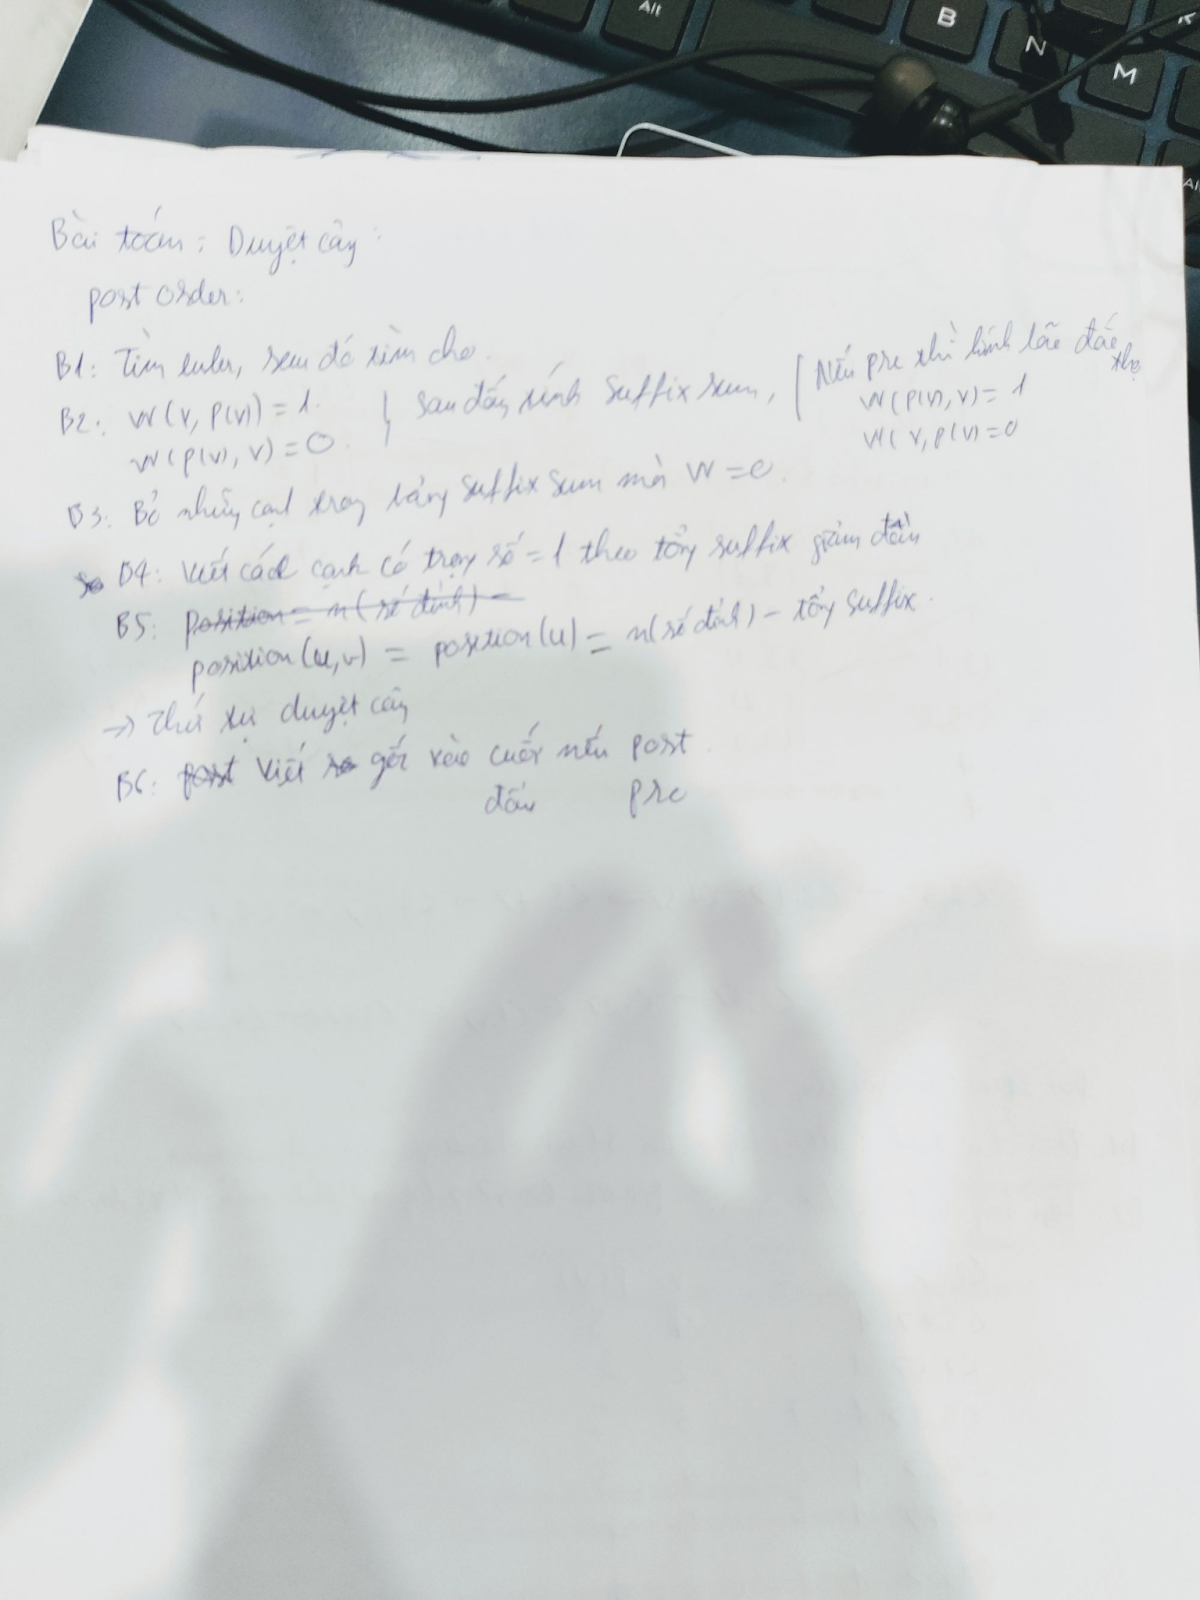 Alt
B
N
M
K
Alt
Bài toán: Duyệt cây:
post order:
B1: Tìm euler, sau đó tìm cha.
B2: W(v, p(v)) = 1.
W(p(v), v) = 0.
sau đấy tính suffix sum,
Nếu pre thì
W(p(v), v) = 1
W(v, p(v) = 0
B3: Bỏ những cạnh trong bảng suffix sum mà W = 0.
B4: Viết các cạnh có trọng số = 1 theo tổng suffix giảm dần
B5: position = n(số đỉnh) -
position(u,v) = position(u) = n(số đỉnh) - tổng suffix.
-> Thứ tự duyệt cây
B6: post Viết gốc vào cuối nếu post.
đầu pre